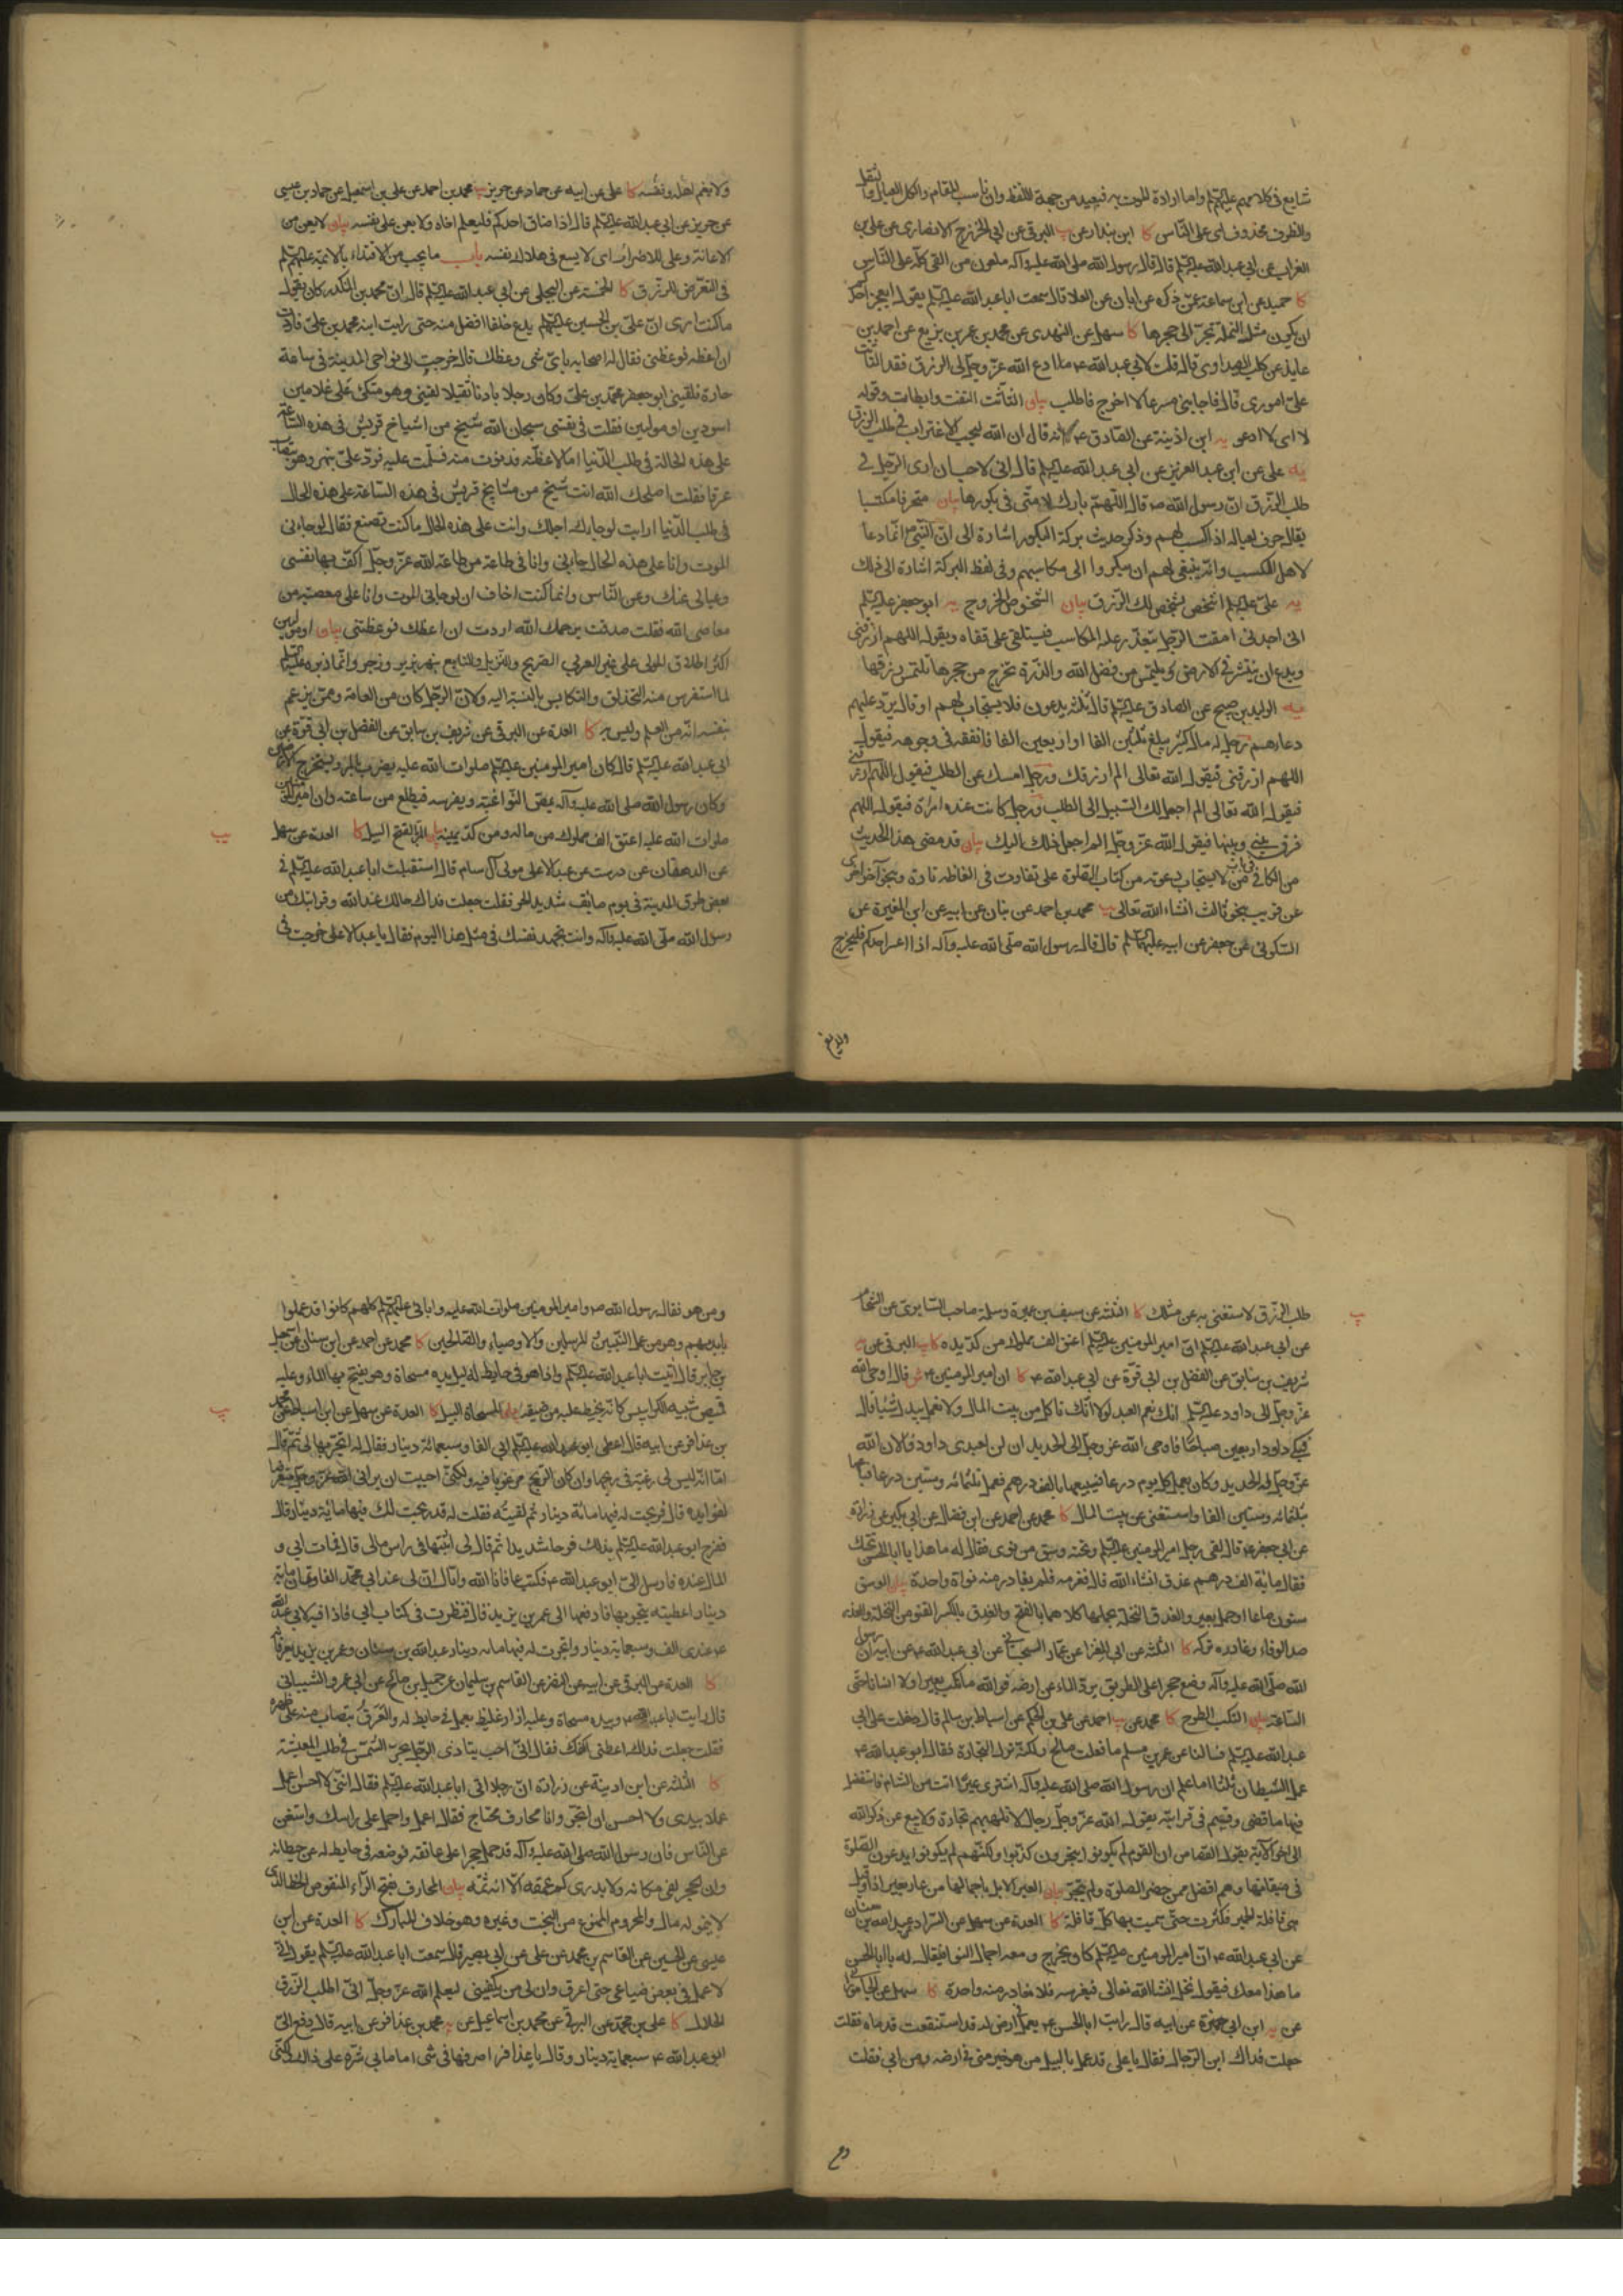 شايع فى كلامهم عليهم السلام واما ارادة الموت به فبعيد من جهة اللفظ وان ناسب المقام والكل العيال والثقل
والظرف محذوف اى على الناس كا ابن بندار عن يب البرقى عن ابى الخزرج الانصارى عن على بن
الغراب عن ابى عبدالله عليه السلم قال قال رسول الله صلى الله عليه وآله ملعون من القى كله على الناس
كا حميد عن ابن سماعة عمن ذكره عن ابان عن العلا قال سمعت ابا عبدالله عليه السلم يقول ايعجز احدكم
ان يكون مثل النملة تجر الى جحرها كا سهل عن النهدى عن محمد بن عمر بن بزيع عن احمد بن
عايذ عن كليب الصيداوى قال قلت لابى عبدالله ع ادع الله عز وجل لى الرزق فقد التاثت
على امورى قال فاجابنى مسرعا لا اخرج فاطلب بيان التاثت التفت وابطات وقوله
لا اى لا ادعو يه ابن اذينة عن الصادق ع انه قال ان الله ليحب الاغتراب فى طلب الرزق
يه على عن ابن عبد العزيز عن ابى عبدالله عليه السلم قال انى لاحب ان ارى الرجل فى
طلب الرزق ان رسول الله ص قال اللهم بارك لامتى فى بكورها بيان متحرفا مكتسبا
يقال حرف لعياله اذا كسب لهم وذكر حديث بركة البكور اشارة الى ان النبى ص انما دعا
لاهل الكسب وانه ينبغى لهم ان يبكروا الى مكاسبهم وفى لفظ البركة اشارة الى ذلك
يه على عليه السلم اشخص يشخص لك الرزق بيان الشخوص الخروج يه ابو جعفر عليه السلم
انى اجدنى امقت الرجل يتعذر عليه المكاسب فيستلقى على قفاه ويقول اللهم ارزقنى
ويدع ان ينتشر فى الارض ويلتمس من فضل الله والذرة تخرج من جحرها تلتمس رزقها
يه الوليد بن صبيح عن الصادق عليه السلم قال ثلثة يدعون فلا يستجاب لهم او قال يرد عليهم
دعاؤهم رجل له مال كثير يبلغ ثلثين الفا او اربعين الفا فانفقه فى وجوهه فيقول
اللهم ارزقنى فيقول الله تعالى الم ارزقك ورجل امسك عن الطلب فيقول اللهم ارزقنى
فيقول الله تعالى الم اجعل لك السبيل الى الطلب ورجل كانت عنده امراة فيقول اللهم
فرق بينى وبينها فيقول الله عز وجل الم اجعل ذلك اليك بيان قد مضى هذا الحديث
من الكافى فى باب من لا يستجاب دعوته من كتاب الصلوة على تفاوت فى الفاظه تارة وبنحو آخر اخرى
عن قريب بنحو ثالث انشاء الله تعالى يب محمد بن احمد عن بنان عن ابيه عن ابن المغيرة عن
السكونى عن جعفر عن ابيه عليهما السلم قال قال رسول الله صلى الله عليه وآله اذا اعسر احدكم فليخرج
ولا يغم
ولا يغم اهله ونفسه كا على عن ابيه عن حماد عن حريز يب محمد بن احمد عن على بن اسمعيل عن حماد بن عيسى
عن حريز عن ابى عبدالله عليه السلم قال اذا ضاق احدكم فليعلم اخاه ولا يعن على نفسه بيان لا يعن من
الاعانة وعلى للاضرار اى لا يسع فى هلاك نفسه باب ما يجب من الاقتداء بالائمة عليهم السلم
فى التعرض للرزق كا الخمسة عن البجلى عن ابى عبدالله عليه السلم قال ان محمد بن المنكدر كان يقول
ما كنت ارى ان على بن الحسين عليهما السلم يدع خلفا افضل منه حتى رايت ابنه محمد بن على فاردت
ان اعظه فوعظنى فقال له اصحابه باى شى وعظك قال خرجت الى نواحى المدينة فى ساعة
حارة فلقينى ابو جعفر محمد بن على وكان رجلا بادنا ثقيلا وهو متكى على غلامين
اسودين او موليين فقلت فى نفسى سبحان الله شيخ من اشياخ قريش فى هذه الساعة
على هذه الحالة فى طلب الدنيا اما لاعظنه فدنوت منه فسلمت عليه فرد على بنهر وهو يتصاب
عرقا فقلت اصلحك الله انت شيخ من مشايخ قريش فى هذه الساعة على هذه الحال
فى طلب الدنيا ارايت لو جاءك اجلك وانت على هذه الحال ما كنت تصنع فقال لو جاءنى
الموت وانا على هذه الحال جاءنى وانا فى طاعة من طاعة الله عز وجل اكف بها نفسى
وعيالى عنك وعن الناس وانما كنت اخاف ان لو جاءنى الموت وانا على معصية من
معاصى الله فقلت صدقت يرحمك الله اردت ان اعظك فوعظتنى بيان او موليين
اكثر اطلاق المولى على غير العربى الصريح والنزيل والتابع بنهر بزبر وزجر وانما نهره عليه السلم
لما استفرس منه التحذلق والتكايس بالنسبة اليه ولان الرجل كان من العامة وممن يزعم
بنفسه انه من العلم وليس به كا العدة عن البرقى عن شريف بن سابق عن الفضل بن ابى قرة عن
ابى عبدالله عليه السلم قال كان امير المومنين عليه السلم صلوات الله عليه يضرب بالمر ويستخرج الارضين
وكان رسول الله صلى الله عليه وآله يمص النواغبته ويغرسه فيطلع من ساعته وان امير المومنين
صلوات الله عليه اعتق الف مملوك من ماله ومن كد يمينه بيان المر بالفتح البيل كا العدة عن سهل
عن الدهقان عن درست عن عبد الاعلى مولى آل سام قال استقبلت ابا عبدالله عليه السلم فى
بعض طرق المدينة فى يوم صايف شديد الحر فقلت جعلت فداك حالك عند الله وقرابتك من
رسول الله صلى الله عليه وآله وانت تجهد نفسك فى مثل هذا اليوم فقال يا عبد الاعلى خرجت فى
طلب الرزق لاستغنى به عن مثلك كا الثلثة عن سيف بن عميرة وسلمة صاحب السابرى عن الشحام
عن ابى عبدالله عليه السلم ان امير المومنين عليه السلم اعتق الف مملوك من كد يده كا يب البرقى عن يه
شريف بن سابق عن الفضل بن ابى قرة عن ابى عبدالله ع كا ان امير المومنين ع ش قال اوحى الله
عز وجل الى داود عليه السلم انك نعم العبد لولا انك تاكل من بيت المال ولا تعمل بيدك شيئا قال
فبكى داود اربعين صباحا فاوحى الله عز وجل الى الحديد ان لن لعبدى داود فالان الله
عز وجل له الحديد وكان يعمل كل يوم درعا فيبيعها بالف درهم فعمل ثلثمائه وستين درعا فباعها
بثلثمائه وستين الفا واستغنى عن بيت المال كا محمد عن احمد عن ابن فضال عن ابن بكير عن زرارة
عن ابى جعفر ع قال لقى رجل امير المومنين عليه السلم وتحته وسق من نوى فقال له ما هذا يا ابا الحسن تحتك
فقال مائة الف درهم عذق انشاء الله قال فغرسه فلم يغادر منه نواة واحدة بيان الوسق
ستون صاعا او حمل بعير والعذق النخلة بحملها كلاهما بالفتح والعذق بالكسر القنو من النخلة والغدر
ضد الوفاء وغادره تركه كا الثلثة عن ابى المغرا عن عمار السجستانى عن ابى عبدالله ع عن ابيه ان رسول
الله صلى الله عليه وآله وضع حجرا على الطريق يرد الماء عن ارضه فوالله ما نكب بعيرا ولا انسانا حتى
الساعة بيان النكب الطرح كا محمد عن يب احمد عن على بن الحكم عن اسباط بن سالم قال دخلت على ابى
عبدالله عليه السلم فسالنا عن عمر بن مسلم ما فعل فقلت صالح ولكنه ترك التجارة فقال ابو عبدالله ع
عمل الشيطان ثلثا اما علم ان رسول الله صلى الله عليه وآله اشترى عيرا اتت من الشام فاستفضل
فيها ما قضى دينه وقسم فى قرابته يقول الله عز وجل رجال لا تلهيهم تجارة ولا بيع عن ذكر الله
الى اخر الآية يقول القصاص ان القوم لم يكونوا يتجرون كذبوا ولكنهم لم يكونوا يدعون الصلوة
فى ميقاتها وهم افضل ممن حضر الصلوة ولم يتجر بيان العير الابل باحمالها من عار يعير اذا او قيل
هى قافلة الحمير فكثرت حتى سميت بها كل قافلة كا العدة عن سهل عن السراد عن عبدالله بن سنان
عن ابى عبدالله ع ان امير المومنين عليه السلم كان يخرج ومعه احمال النوا فيقال له يا ابا الحسن
ما هذا معك فيقول نخل انشاء الله تعالى فيغرسه فلا يغادر منه واحدة كا سهل عن الجامورانى
عن يه ابن ابى حمزة عن ابيه قال رايت ابا الحسن ع يعمل فى ارض له قد استنقعت قدماه فقلت
جعلت فداك اين الرجال فقال يا على قد عمل بالبيل من هو خير منى فى ارضه ومن ابى فقلت
ومن هو فقال رسول الله ص وامير المومنين صلوات الله عليه وابائى عليهم السلم كلهم كانوا قد عملوا
بايديهم وهو من عمل النبيين والمرسلين والاوصياء والصالحين كا محمد عن احمد عن ابن سنان عن اسمعيل
بن جابر قال اتيت ابا عبدالله عليه السلم واذا هو فى حايط له بيده مسحاة وهو يفتح بها الماء وعليه
قميص شبيه الكرابيس كانه مخيط عليه من ضيقه بيان المسحاة البيل كا العدة عن سهل عن ابن اسباط عن محمد
بن عذافر عن ابيه قال اعطى ابو عبدالله عليه السلم ابى الفا وسبعمائة دينار فقال له اتجر بها لى ثم قال
اما انه ليس لى رغبة فى ربحها وان كان الربح مرغوبا فيه ولكنى احببت ان يرانى الله عز وجل متعرضا
لفوايده قال فربحت له فيها مائة دينار ثم لقيته فقلت له قد ربحت لك فيها مائة دينار قال
ففرح ابو عبدالله عليه السلم بذلك فرحا شديدا ثم قال لى اثبتها فى راس مالى قال فمات ابى و
المال عنده فارسل الى ابو عبدالله ع فكتب عافانا الله واياك ان لى عند ابى محمد الفا وثمان مائة
دينار اعطيته يتجر بها فادفعها الى عمر بن يزيد قال فنظرت فى كتاب ابى فاذا فيه لابى عبدالله
ع عندى الف وسبعماية دينار واتجرت له فيها مائه دينار عبدالله بن سنان وعمر بن يزيد يعرفانه
كا العدة عن البرقى عن ابيه عن النضر عن القاسم بن سليمان عن جميل بن صالح عن ابى عمرو الشيبانى
قال رايت ابا عبدالله ع وبيده مسحاة وعليه ازار غليظ يعمل فى حايط له والعرق يتصاب منه على ظهره
فقلت جعلت فداك اعطنى اكفك فقال انى احب يتاذى الرجل بحر الشمس فى طلب المعيشة
كا الثلثة عن ابن اذينة عن زرارة ان رجلا اتى ابا عبدالله عليه السلم فقال اننى لا احسن ان اعمل
عملا بيدى ولا احسن ان اتجر وانا محارف محتاج فقال اعمل واحمل على راسك واستغن
عن الناس فان رسول الله صلى الله عليه وآله قد حمل حجرا على عاتقه فوضعه فى حايط له من حيطانه
وان الحجر لفى مكانه ولا يدرى كم عمقه الا انه ثمه بيان المحارف بفتح الراء المنقوص الحظ الذى
لا ينمو له مال والمحروم الممنوع من البخت وغيره وهو خلاف المبارك كا العدة عن ابن
عيسى عن الحسين عن القاسم بن محمد عن على عن ابى بصير قال سمعت ابا عبدالله عليه السلم يقول انى
لاعمل فى بعض ضياعى حتى اعرق وان لى من يكفينى ليعلم الله عز وجل انى اطلب الرزق
الحلال كا على بن محمد عن البرقى عن محمد بن اسماعيل عن يه محمد بن عذافر عن ابيه قال دفع الى
ابو عبدالله ع سبعماية دينار وقال يا عذافر اصرفها فى شى اما ما بى شره على ذلك ولكنى